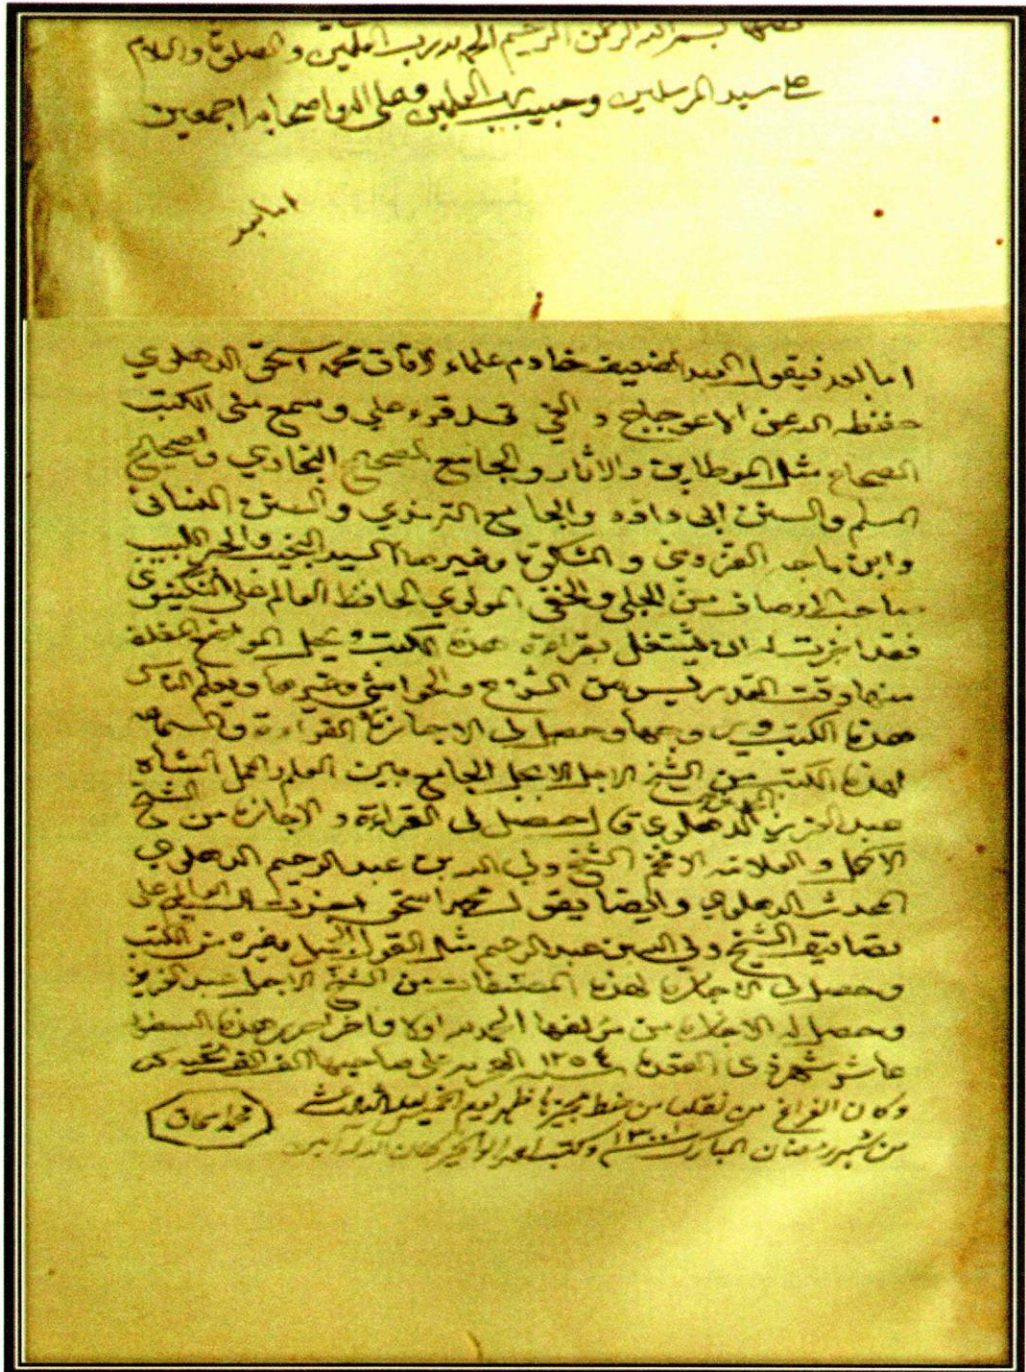 بسم الله الرحمن الرحيم الحمد لله رب العلمين والصلوة والسلام
على سيد المرسلين وحبيب رب العلمين وعلى اله واصحابه اجمعين
اما بعد
اما بعد فيقول العبد الضعيف خادم علماء الافاق محمد اسحق الدهلوي
حفظه الله عن الاعوجاج قد قرء علي وسمع مني الكتب
الصحاح مثل الموطاين والاثار والجامع الصحيح البخاري والصحيح
المسلم والسنن ابى داؤد والجامع الترمذي والسنن النسائى
وابن ماجه القزوينى والمشكوة وغيرها السيد النجيب والحبر اللبيب
صاحب الاوصاف من الجلي والخفي المولوي الحافظ العالم على
فقد اجزت له ان يشتغل بقراءة هذه الكتب ويحل المواضع المغلقة
منها وقت التدريس من الشروح والحواشي وغيرها ويعلم الناس
هذه الكتب وحصل لى الاجازة والقراءة والسماعة
لهذه الكتب من الشيخ الاجل الابجل الجامع بين العلم والعمل الشاه
عبد العزيز الدهلوي حصل لى القراءة والاجازة من الشيخ
الاكمل والعلامة الافخم الشيخ ولي الله بن عبد الرحيم الدهلوي
المحدث الدهلوي وايضا يقول محمد اسحق اجزت السيد العالم على
تصانيف الشيخ ولي الله بن عبد الرحيم مثل القول الجميل وغيره من الكتب
وحصل لى الاجازة لهذه المصنفات من الشيخ الاجل عبد العزيز
وحصل له الاجازة من مؤلفها الحمد لله اولا واخرا حرر هذه السطور
عاشر شهر ذى القعدة سنة ١٢٥٤ الهجريه على صاحبها الف الف تحية
وكان الفراغ من نقلها من خط مجيزها ظهر يوم الخميس
من شهر رمضان المبارك ١٣٠٠ وكتبه احمد ابو الخير كان الله له آمين
محمد اسحاق